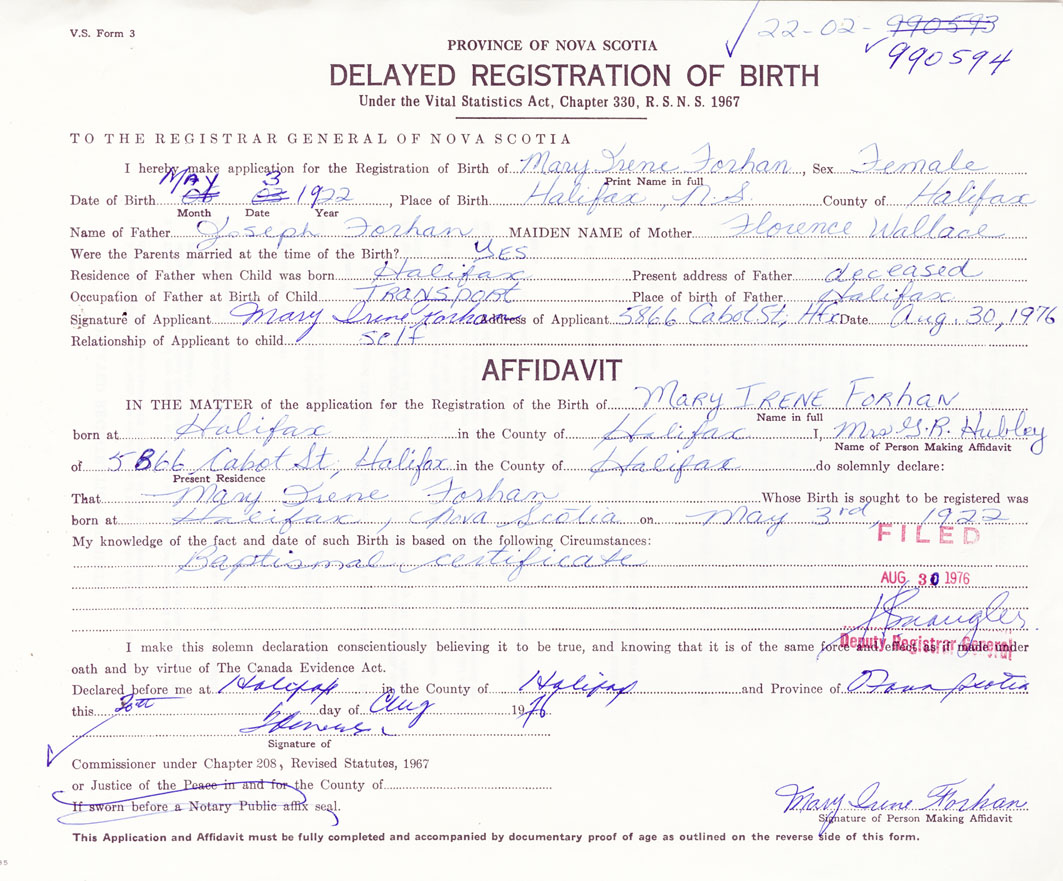 V.S. Form 3
22-02-990593
990594
PROVINCE OF NOVA SCOTIA
DELAYED REGISTRATION OF BIRTH
Under the Vital Statistics Act, Chapter 330, R.S.N.S. 1967
TO THE REGISTRAR GENERAL OF NOVA SCOTIA
I hereby make application for the Registration of Birth of Mary Irene Forhan, Sex Female
Print Name in full
Date of Birth MAY 3 1922, Place of Birth Halifax, N.S. County of Halifax
Month Date Year
Name of Father Joseph Forhan MAIDEN NAME of Mother Florence Wallace
Were the Parents married at the time of the Birth? YES
Residence of Father when Child was born Halifax Present address of Father deceased
Occupation of Father at Birth of Child TRANSPORT Place of birth of Father Halifax
Signature of Applicant Mary Irene Forhan Address of Applicant 5866 Cabot St; Hfx Date Aug. 30, 1976
Relationship of Applicant to child self
AFFIDAVIT
IN THE MATTER of the application for the Registration of the Birth of MARY IRENE FORHAN
Name in full
born at Halifax in the County of Halifax I, Mrs G.R. Hubley
Name of Person Making Affidavit
of 5866 Cabot St, Halifax in the County of Halifax do solemnly declare:
Present Residence
That Mary Irene Forhan Whose Birth is sought to be registered was
born at Halifax, Nova Scotia on May 3rd, 1922
FILED
My knowledge of the fact and date of such Birth is based on the following Circumstances:
Baptismal certificate
AUG 30 1976
Deputy Registrar General
I make this solemn declaration conscientiously believing it to be true, and knowing that it is of the same force and effect as if made under
oath and by virtue of The Canada Evidence Act.
Declared before me at Halifax in the County of Halifax and Province of Nova Scotia
this 30th day of Aug 1976
Signature of
Commissioner under Chapter 208, Revised Statutes, 1967
or Justice of the Peace in and for the County of
If sworn before a Notary Public affix seal.
Mary Irene Forhan
Signature of Person Making Affidavit
This Application and Affidavit must be fully completed and accompanied by documentary proof of age as outlined on the reverse side of this form.